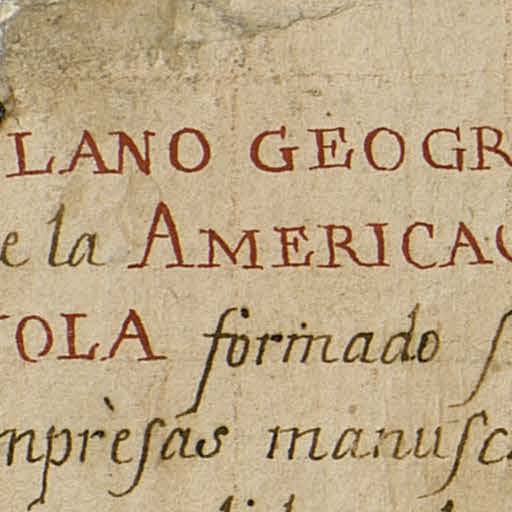 LANO GEOGR
e la AMERICA
OLA formado
mprèsas manusc